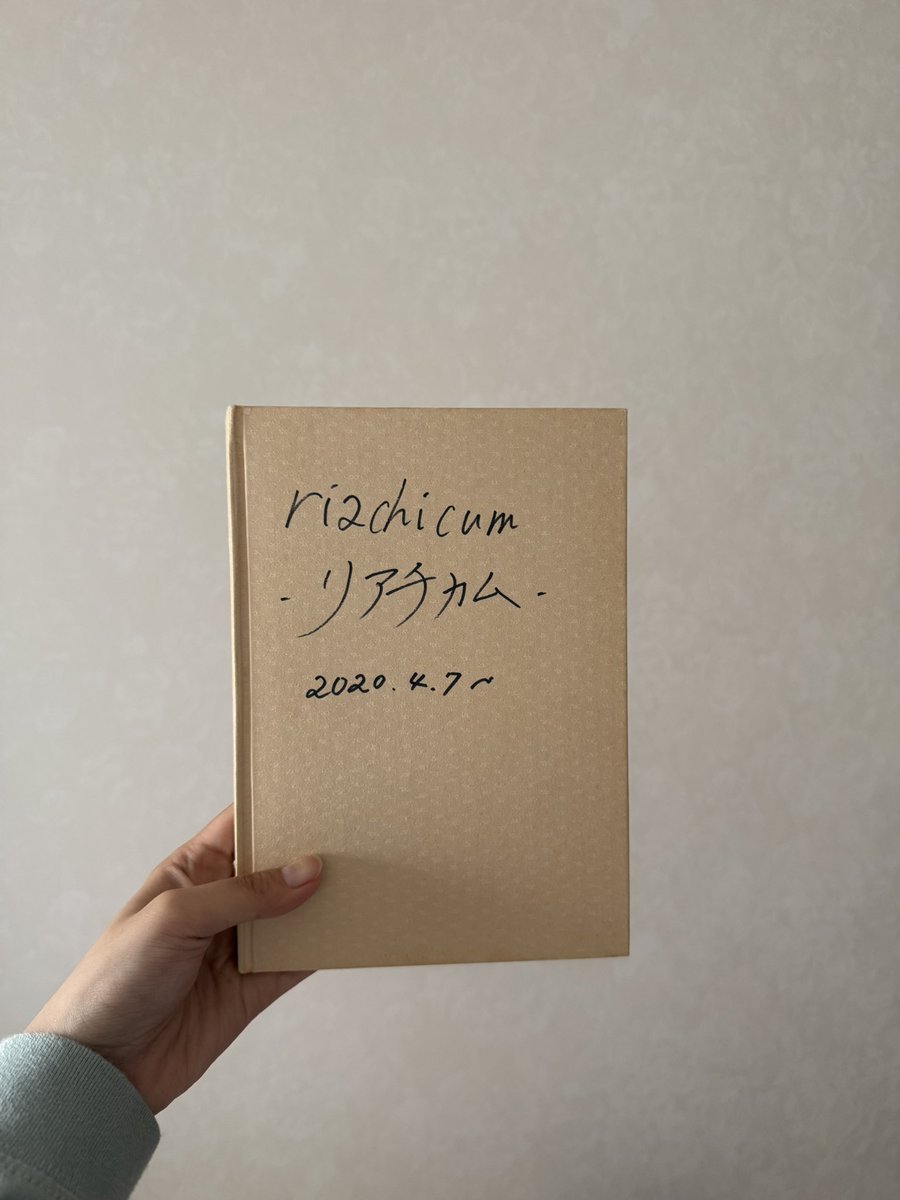 riachicum
-リアチカム-
2020.4.7~